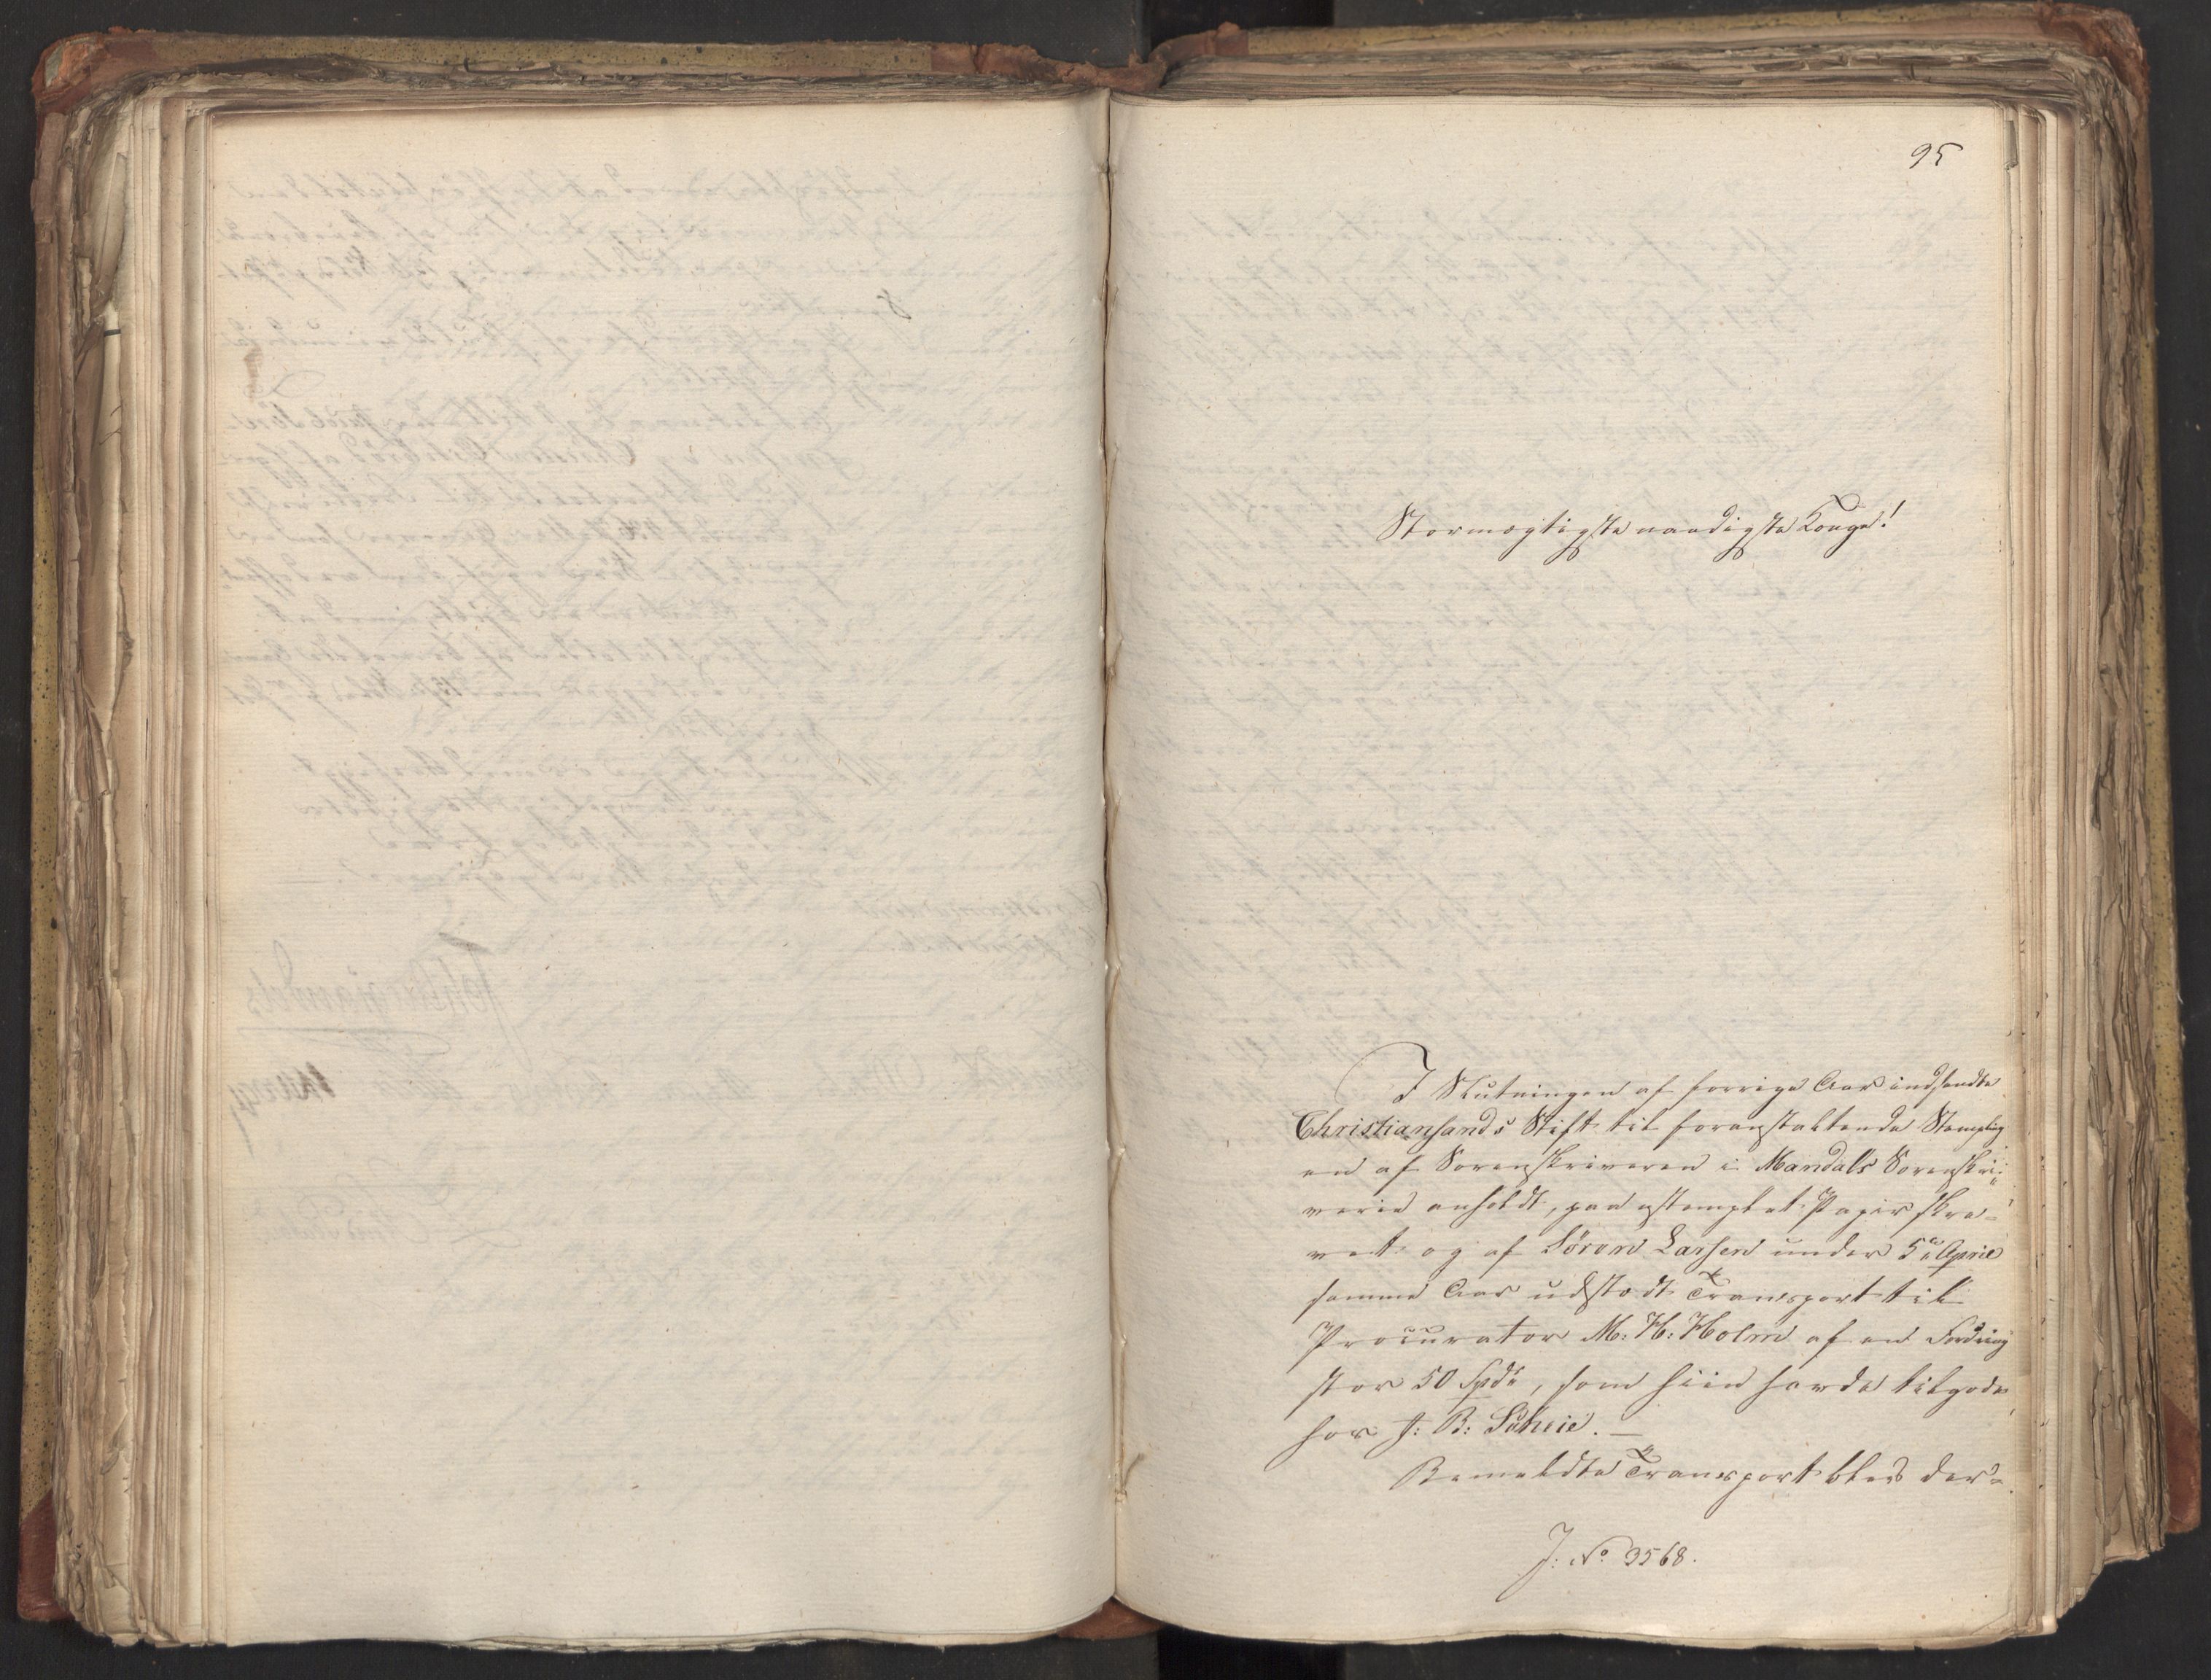 95
Stormægtigste naadigste Konge!
I Slutningen af forrige Aar indsendte
Christiansands Stift til foranstaltende Stempling
en af Sorenskriveren i Mandals Sorenskri-
verie anholdt, paa ustemplet Papir skre-
vet og af Søren Larsen under 5te April
samme Aar udstedt Transport til
Procurator M: H: Holm af en Fordring
stor 50 Spd, som hiin havde tilgode
hos J: B: Scheie. —
Bemeldte Transport blev der-
J: No 3568.